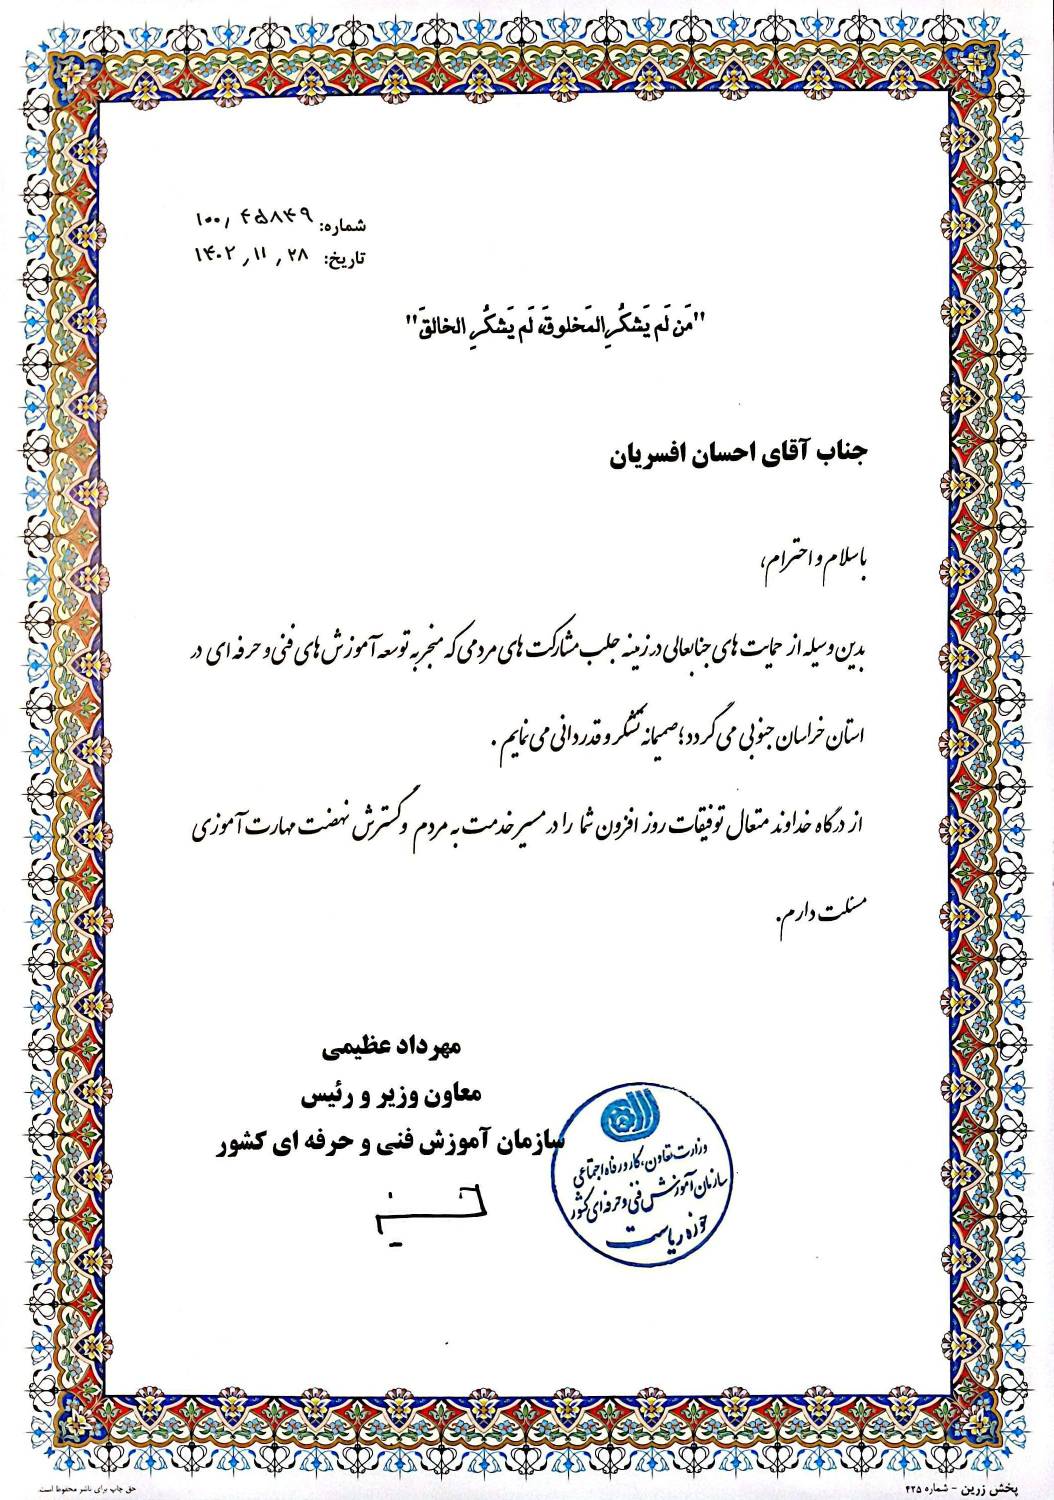 شماره: ۱۰۰٫۴۵۸۴۹
تاریخ: ۱۴۰۲٫۱۱٫۲۸
"مَن لَم یَشکُرِ المَخلوقَ، لَم یَشکُرِ الخالقَ"
جناب آقای احسان افسریان
باسلام و احترام،
بدین وسیله از حمایت های جنابعالی در زمینه جلب مشارکت های مردمی که منجر به توسعه آموزش های فنی و حرفه ای در
استان خراسان جنوبی می گردد؛ صمیمانه تشکر و قدردانی می نمایم .
از درگاه خداوند متعال توفیقات روز افزون شما را در مسیر خدمت به مردم و گسترش نهضت مهارت آموزی
مسئلت دارم.
مهرداد عظیمی
معاون وزیر و رئیس
سازمان آموزش فنی و حرفه ای کشور
وزارت تعاون، کار و رفاه اجتماعی
سازمان آموزش فنی و حرفه ای کشور
حوزه ریاست
پخش زرین - شماره ۴۲۵
حق چاپ برای ناشر محفوظ است.